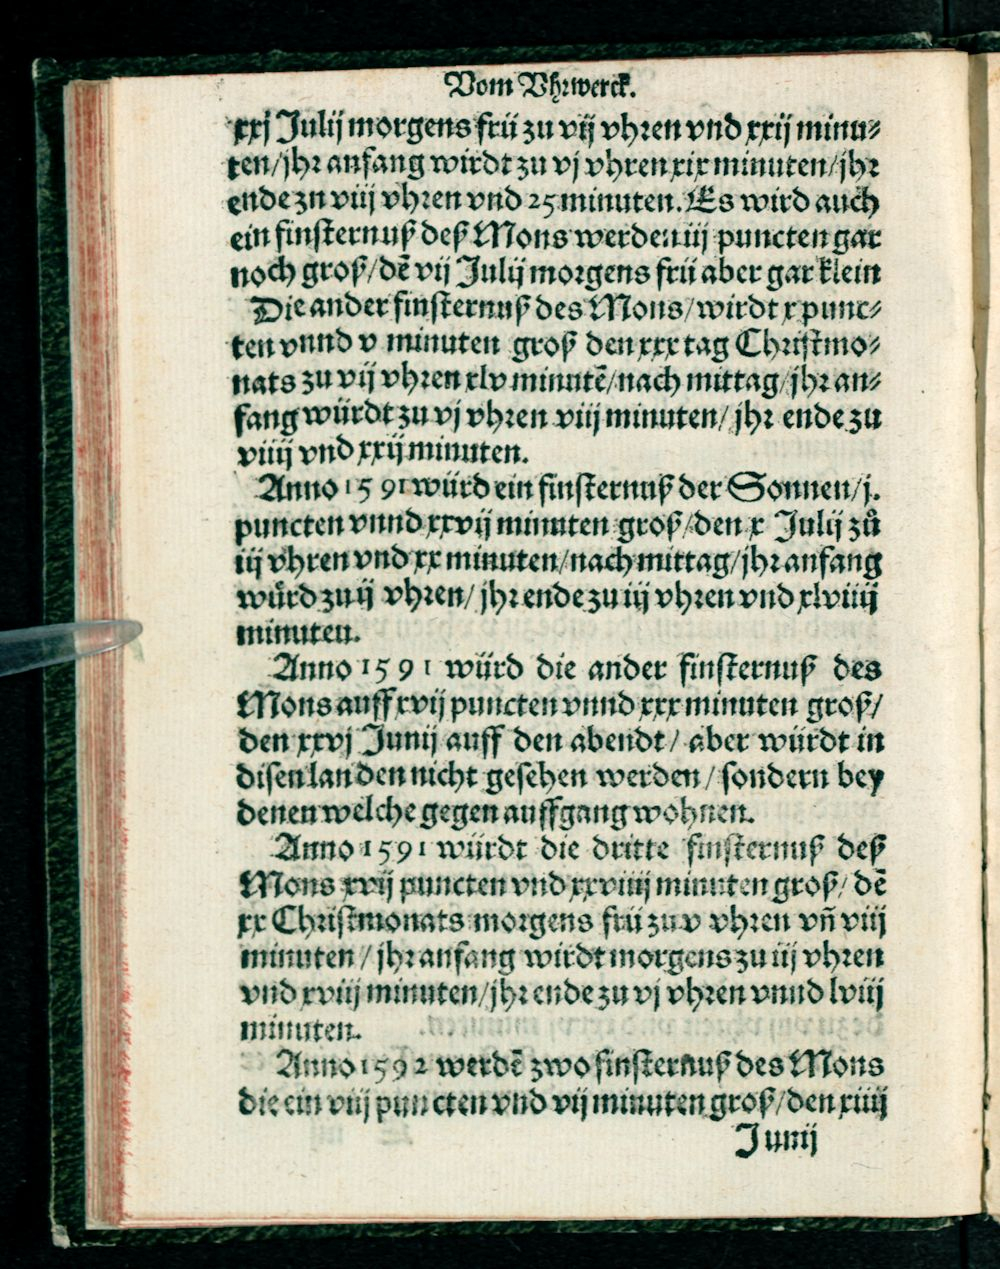 Vom Vhrwerck.
xxj Julij morgens frü zu vij vhren vnd xxij minu⸗
ten/jhr anfang wirdt zu vj vhren xix minuten/jhr
ende zn viij vhren vnd 25 minuten. Es wird auch
ein finsternuß deß Mons werden iij puncten gar
noch groß/dē vij Julij morgens frü aber gar klein
Die ander finsternuß des Mons/wirdt x punc⸗
ten vnnd v minuten groß den xxx tag Christmo⸗
nats zu vij vhren xlv minutē/nach mittag/jhr an⸗
fang würdt zu vj vhren viij minuten/jhr ende zu
viiij vnd xxij minuten.
Anno 1591 würd ein finsternuß der Sonnen/j.
puncten vnnd xxvij minuten groß/den x Julij zů
iij vhren vnd xx minuten/nach mittag/jhr anfang
wůrd zu ij vhren/jhr ende zu iij vhren vnd xlviiij
minuten.
Anno 1591 würd die ander finsternuß des
Mons auff xvij puncten vnnd xxx minuten groß/
den xxvj Junij auff den abendt/aber würdt in
disen landen nicht gesehen werden/sondern bey
denen welche gegen auffgang wohnen.
Anno 1591 würdt die dritte finsternuß deß
Mons xvij puncten vnd xxviiij minuten groß/dē
xx Christmonats morgens frü zu v vhren vn̄ viij
minuten/jhr anfang wirdt morgens zu iij vhren
vnd xviij minuten/jhr ende zu vj vhren vnnd lviij
minuten.
Anno 1592 werdē zwo finsternuß des Mons
die ein viij puncten vnd vij minuten groß/den xiiij
Junij